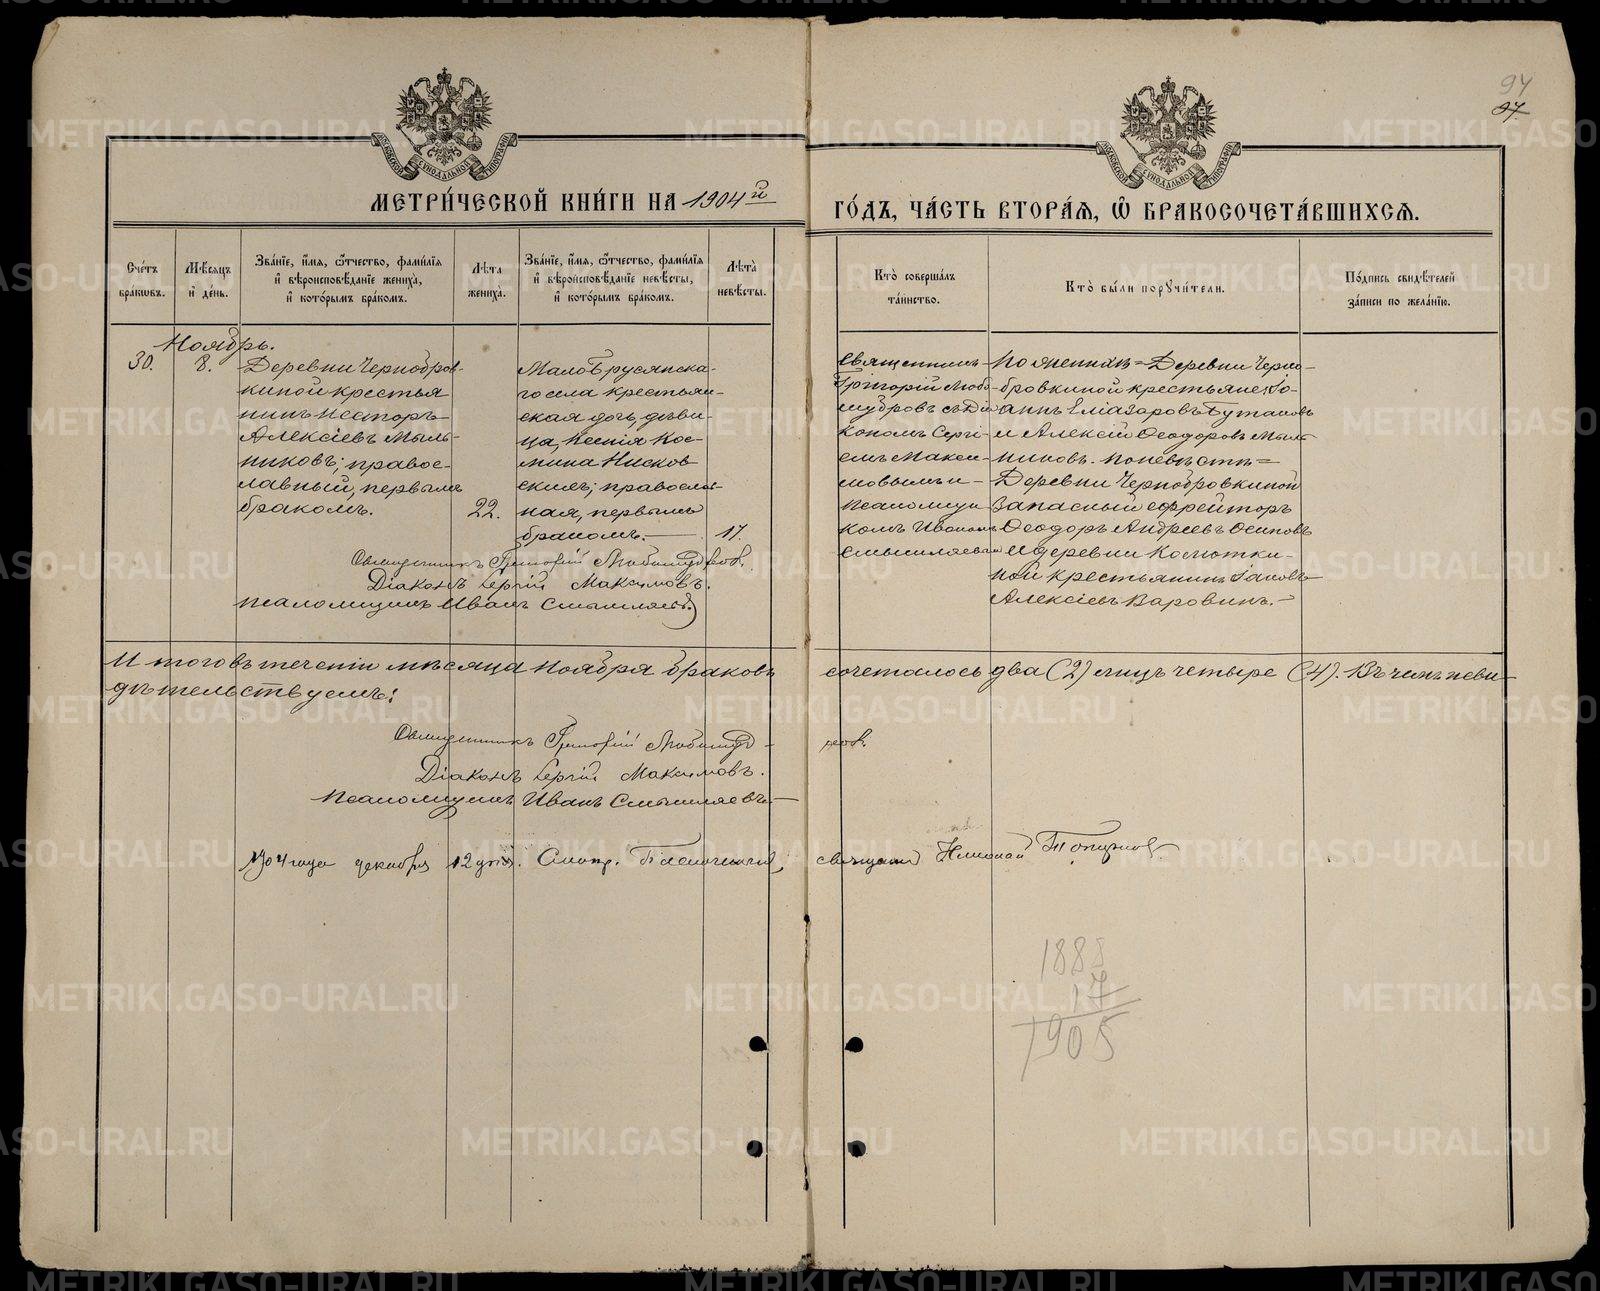 94
97
МЕТРИ́ЧЕСКОЙ КНИ́ГИ НА 1904й ГО́ДЪ, ЧА́СТЬ ВТОРА́Я, Ѡ БРАКОСОЧЕТА́ВШИХСЯ.
Сче́тъ бра́ковъ.
Мѣ́сяцъ и́ де́нь.
Зва́нїе, и́мя, ѻ҆́тчество, фами́лїя и҆ вѣроисповѣ́данїе жениха̀, и҆ кото́рымъ бра́комъ.
Лѣ́та жениха̀.
Зва́нїе, и́мя, ѻ҆́тчество, фами́лїя и҆ вѣроисповѣ́данїе невѣ́сты, и҆ кото́рымъ бра́комъ.
Лѣ́та невѣ́сты.
Кто̀ соверша́лъ та́инство.
Кто̀ бы́ли порꙋчи́тели.
По́дпись свидѣ́телей за́писи по жела́нїю.
Ноябрь.
30.
8.
Деревни Чернобров-
киной крестья
нинъ Несторъ
Алексіевъ Мыль-
никовъ; правос-
лавный, первымъ
бракомъ.
22.
Мало Брусянска-
го села крестьян-
ская дочь, дѣви-
ца, Ксенія Кос-
мина Нисков
скихъ; православ-
ная, первымъ
бракомъ.
17.
Священник-
Григорій Любо-
мудровъ съ Діа
кономъ Сергі-
емъ Макси-
мовымъ и
псаломщи
комъ Иваномъ
Смышляевым
По женихѣ = Деревни Черно-
бровкиной крестьяне: Іо-
аннъ Еліазаровъ Бутаковъ
и Алексій Ѳеодоровъ Мыль
никовъ. По невѣстѣ =
Деревни Чернобровкиной
Запасный ефрейторъ
Ѳеодоръ Андреевъ Осиповъ
и деревни Колютки-
ной крестьянинъ Іаковъ
Алексіевъ Варовинъ.
Священникъ Григорій Любомудровъ.
Діаконъ Сергій Максимовъ.
Псаломщикъ Иванъ Смышляевъ
Итого въ теченіи мѣсяца ноября браковъ сочеталось два (2) лицъ четыре (4). Въ чемъ сви-
дѣтельствуемъ:
Священникъ Григорій Любомудровъ.
Діаконъ Сергій Максимовъ.
Псаломщикъ Иванъ Смышляевъ
1904 года декабря 12 дня. священник Николай Топорков
1888
17
1905
METRIKI.GASO-URAL.RU